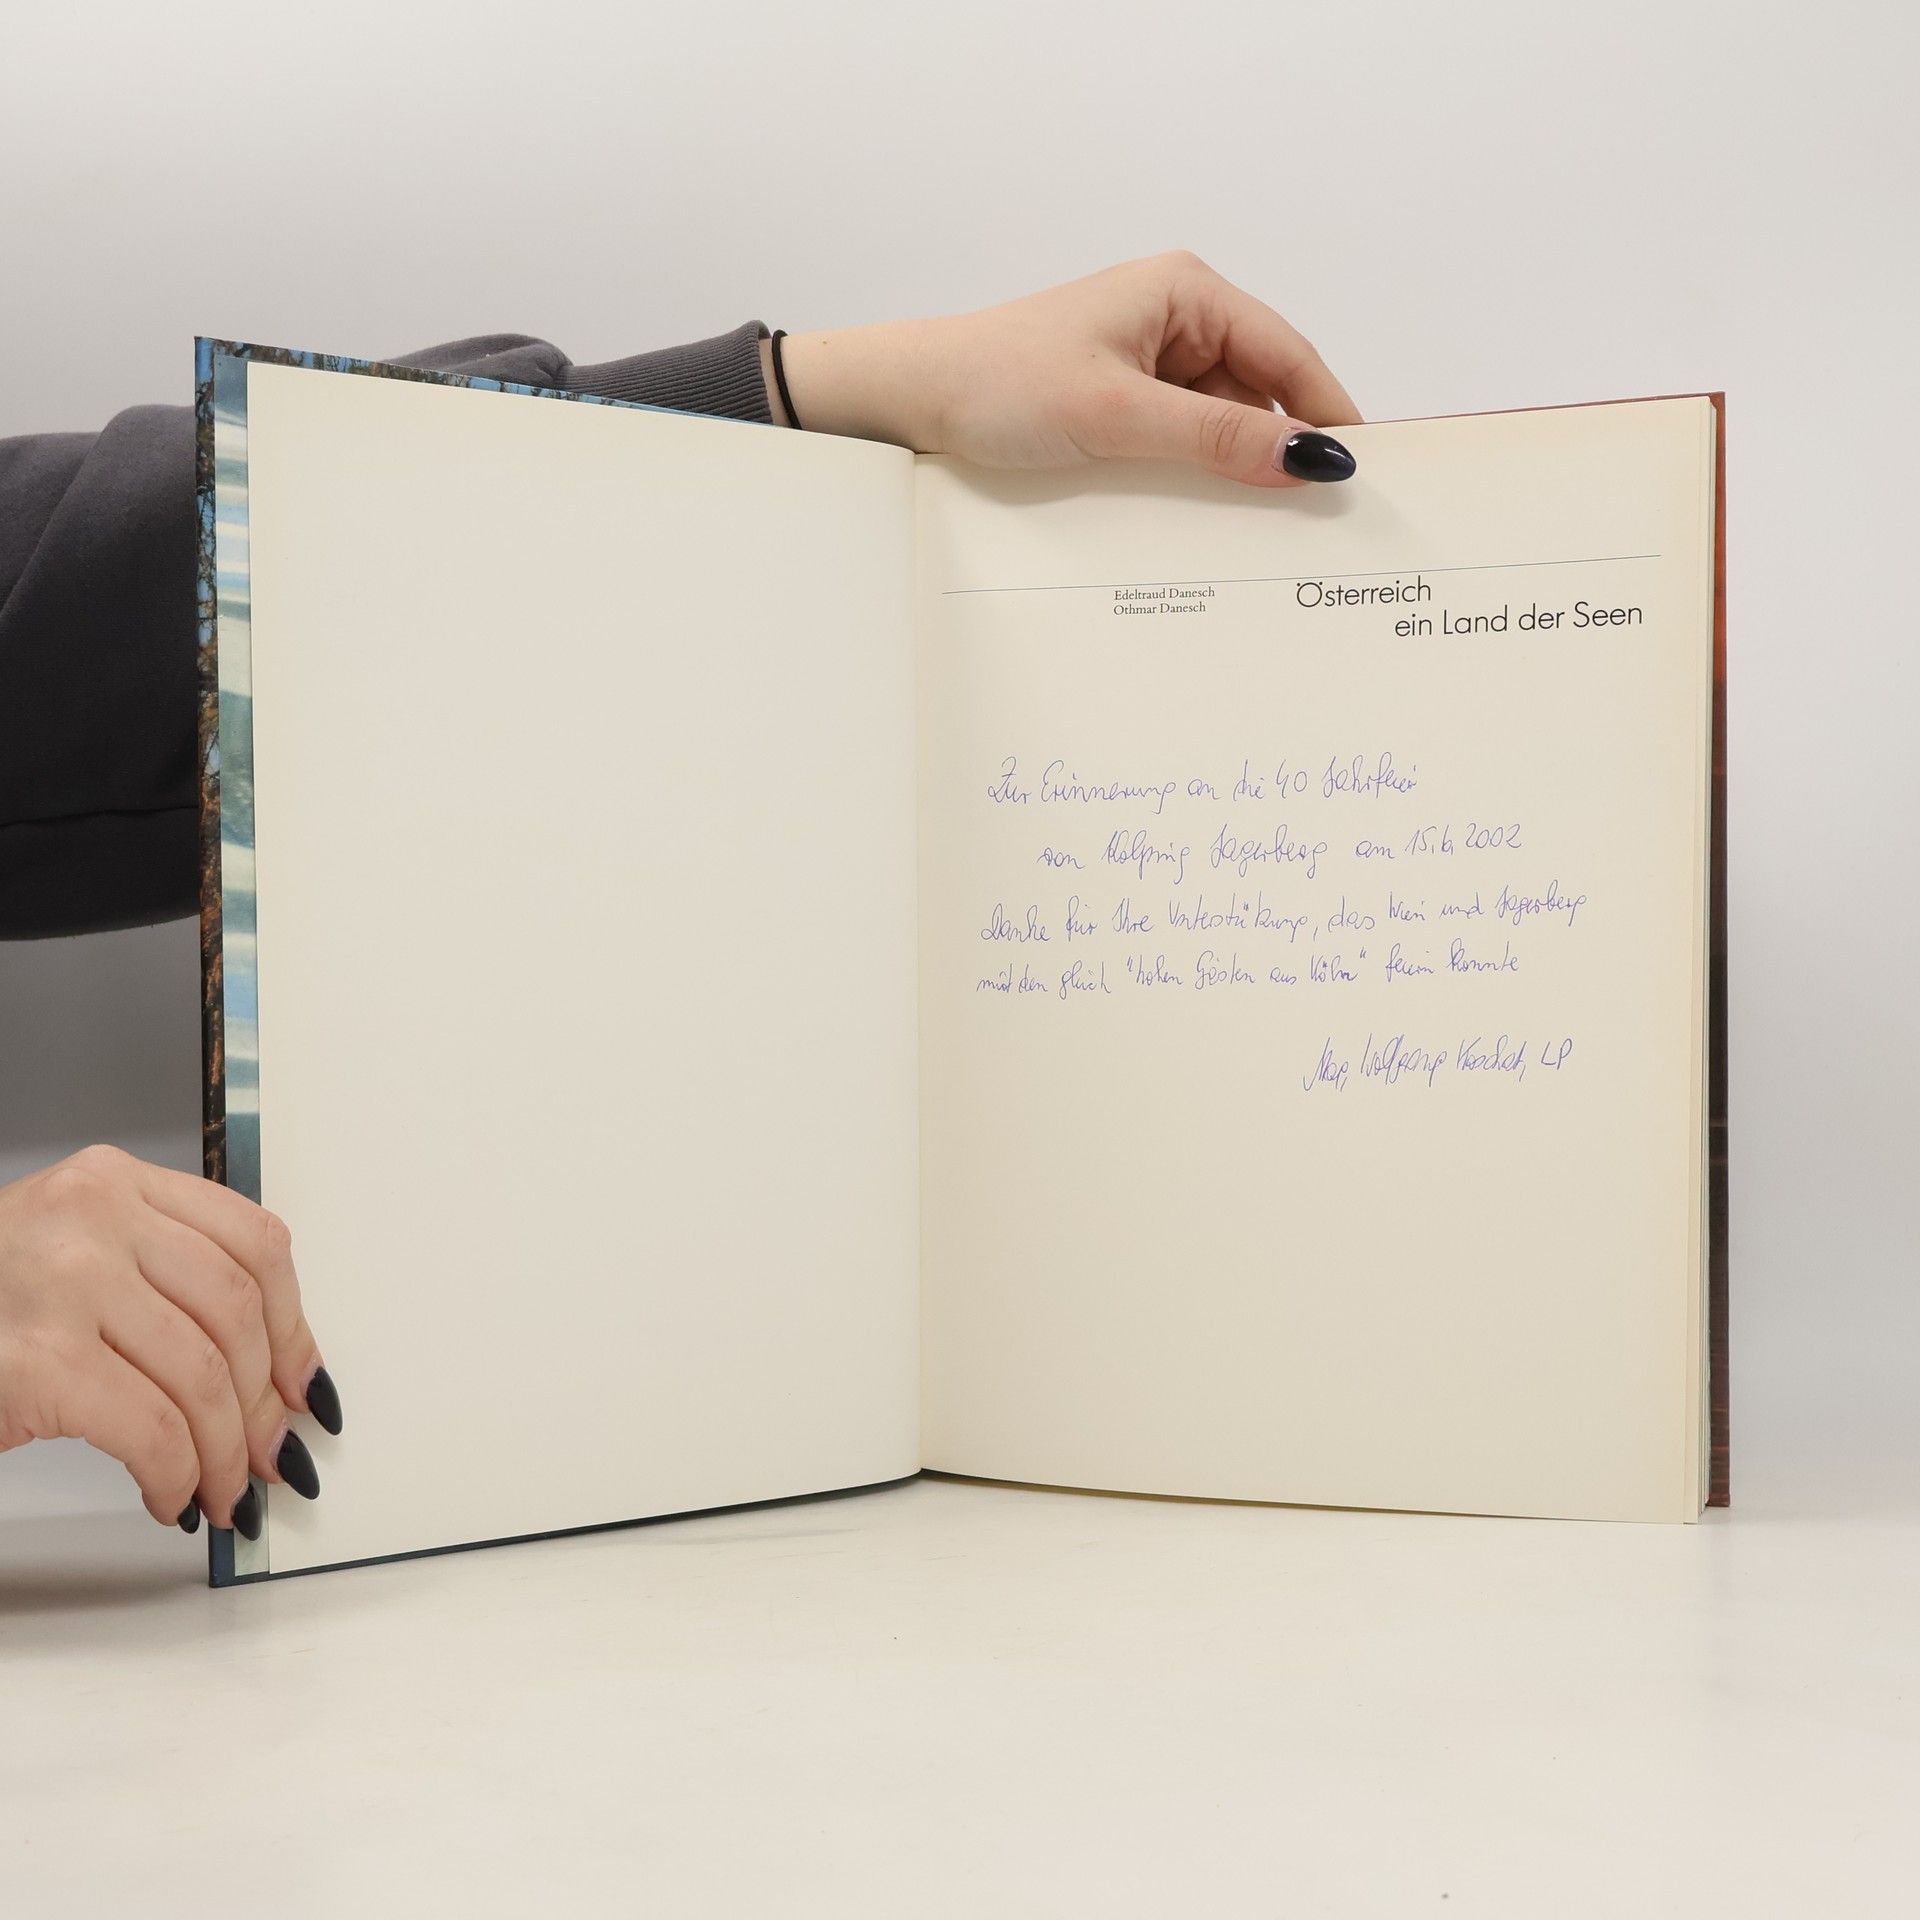 Edeltraud Danesch
Othmar Danesch
Österreich
ein Land der Seen
Zur Erinnerung an die 40 Jahrfeier
von Kolping Jagerberg am 15.6.2002
Danke für Ihre Unterstützung, das Wien und Jagerberg
mit den gleich "hohen Gästen aus Köln" feiern konnte
Mag. Wolfgang LP